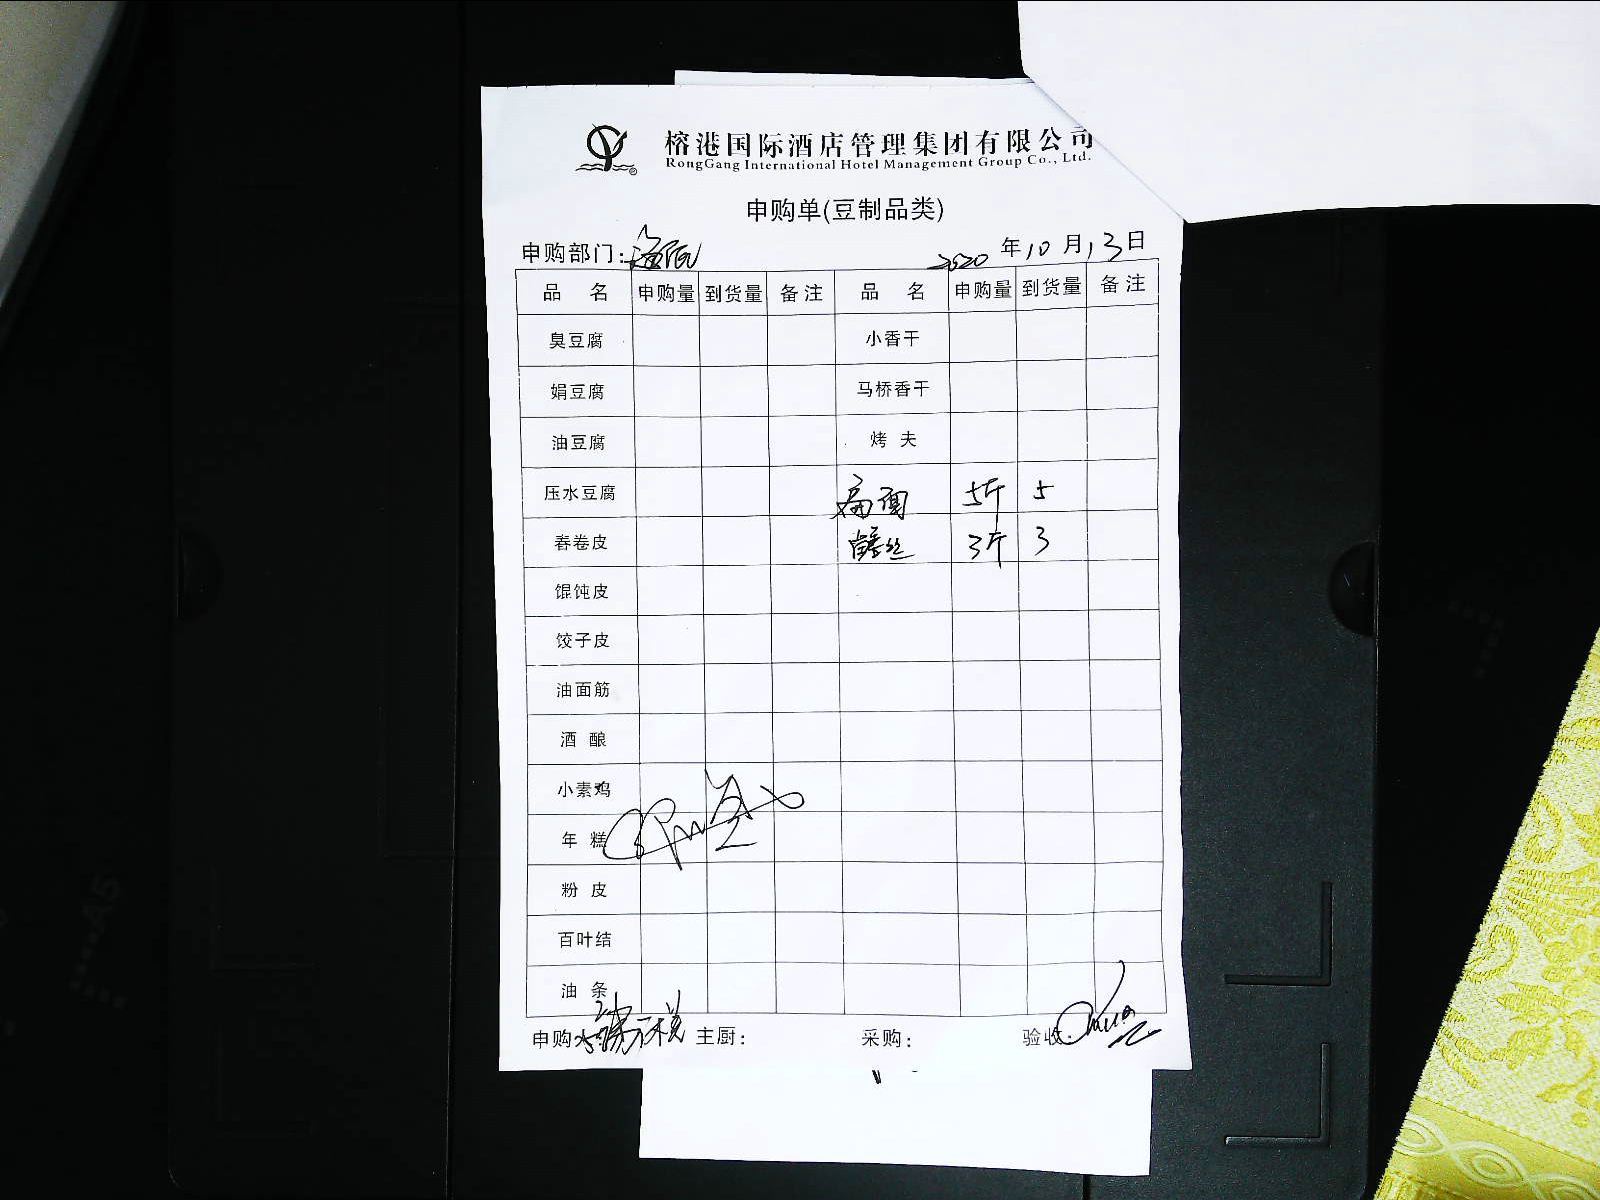 榕港国际酒店管理集团有限公司
RongGang International Hotel Management Group Co., Ltd.
申购单(豆制品类)
申购部门: 2020 年 10 月 13 日
品 名 申购量 到货量 备注 品 名 申购量 到货量 备注
臭豆腐 小香干
娟豆腐 马桥香干
油豆腐 烤 夫
压水豆腐 5斤 5
春卷皮 3斤 3
馄饨皮
饺子皮
油面筋
酒 酿
小素鸡
年 糕
粉 皮
百叶结
油 条
申购 主厨: 采购: 验收:
A5